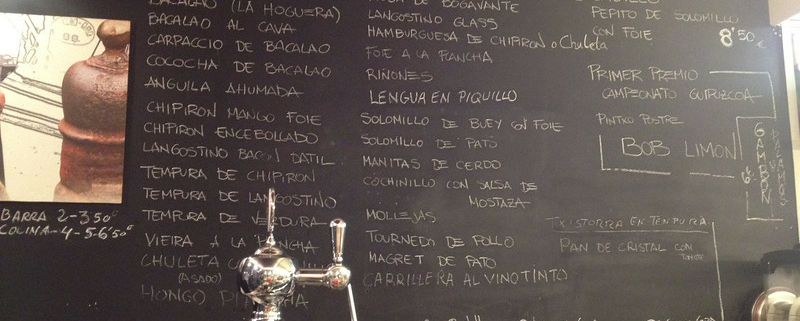 BACALAO (LA HOGUERA)
BACALAO AL CAVA
CARPACCIO DE BACALAO
COCOCHA DE BACALAO
ANGUILA AHUMADA
CHIPIRON MANGO FOIE
CHIPIRON ENCEBOLLADO
LANGOSTINO BACON DATIL
TEMPURA DE CHIPIRON
TEMPURA DE LANGOSTINO
TEMPURA DE VERDURA
VIEIRA A LA PLANCHA
CHULETA
(ASADO)
HONGO
BARRA 2-3,50€
COCINA-4-5-6'50€
DE BOGAVANTE
LANGOSTINO GLASS
HAMBURGUESA DE CHIPIRON o Chuleta
FOIE A LA PLANCHA
RIÑONES
LENGUA EN PIQUILLO
SOLOMILLO DE BUEY CON FOIE
SOLOMILLO DE PATO
MANITAS DE CERDO
COCHINILLO CON SALSA DE
MOSTAZA
MOLLEJAS
TOURNEDO DE POLLO
MAGRET DE PATO
CARRILLERA AL VINO TINTO
PEPITO DE SOLOMILLO
CON FOIE
8'50 €
PRIMER PREMIO
CAMPEONATO GUIPUZCOA
PINTXO POSTRE
BOB LIMON
GAMBON
6€
TXISTORRA EN TEMPURA
PAN DE CRISTAL CON
TOMATE